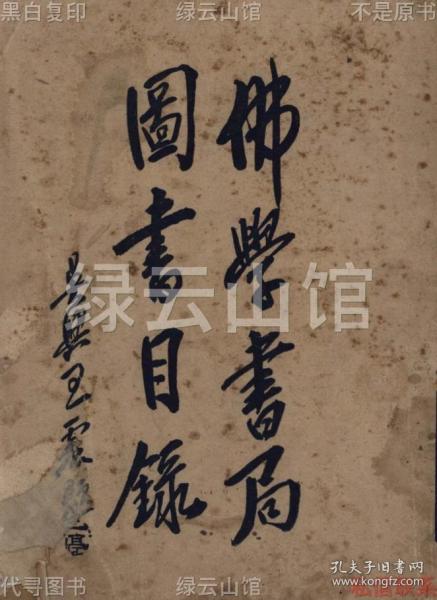 黑白复印
绿云山馆
不是原书
佛學書局
圖書目錄
吳興王震題
绿云山馆
代寻图书
绿云山馆
孔夫子旧书网
www.kongfz.com